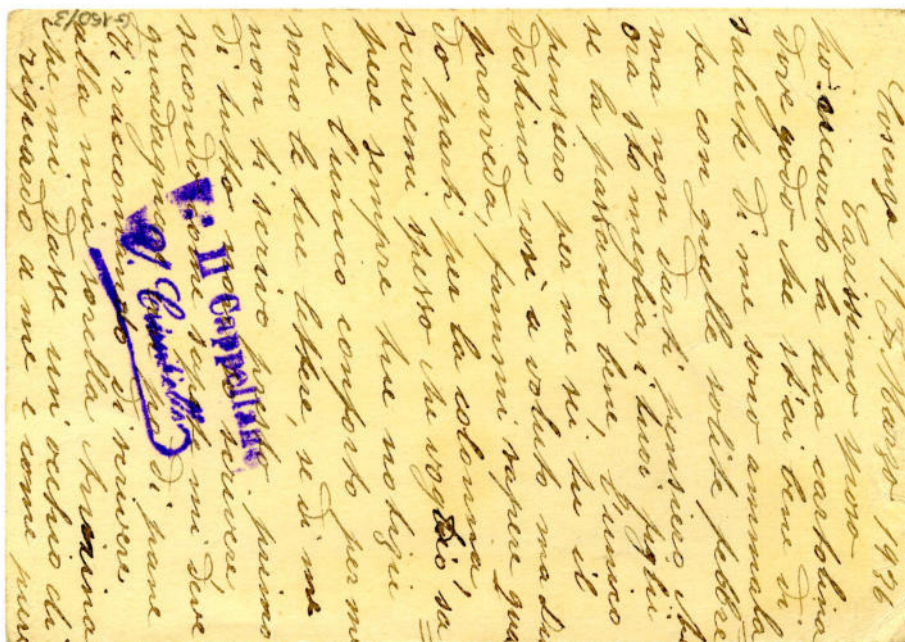 Cosenza 17 Marzo 1936
Carissimo
ho ricevuto la tua cartolina
dove godo che stai bene di
salute. Di me sono ammala
ta con quelle solite febbre
ma non darti pensiero che
ora sto meglio, i tuoi figli
se la passano bene, l'unico
pensiero per me sei tu il
destino così a voluto ma Dio
provveda, fammi sapere quan
do parti per la colonia,
scrivemi spesso che voglio sa =
pere sempre tue notizie
che l'unico conforto per me
sono le tue lettere, se di me
non ti scrivo
di tutto scrivere
secondo mi deve
guadagnare di pane
Ti raccomando di scrivere
alla mia sorella
che mi dasse un occhio di =
riguardo a me e come pure
Il Cappellano
G-150/3